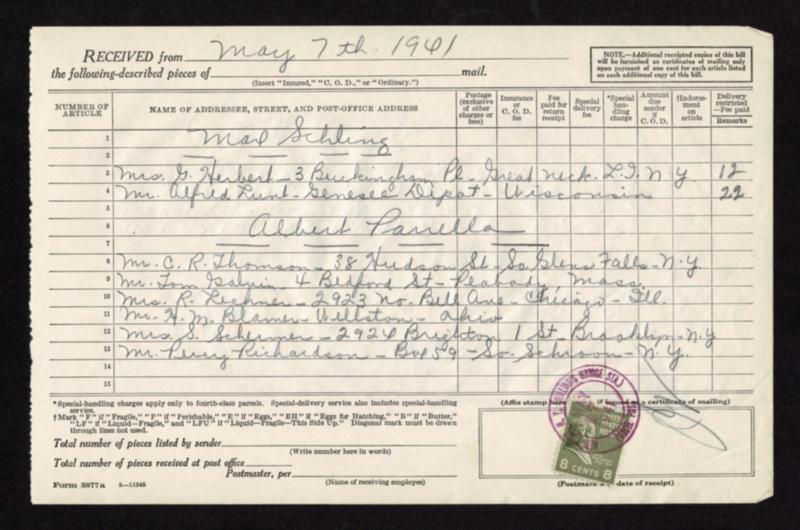 RECEIVED from May 7th. 1941
the following-described pieces of mail.
(Insert "Insured," "C. O. D.," or "Ordinary.")
NOTE.—Additional receipted copies of this bill will be furnished as certificates of mailing only upon payment of one cent for each article listed on each additional copy of this bill.
NUMBER OF ARTICLE NAME OF ADDRESSEE, STREET, AND POST-OFFICE ADDRESS Postage (exclusive of other charges or fees) Insurance or C. O. D. fee Fee paid for return receipt Special delivery fee *Special handling charge Amount due sender if C. O. D. †Indorsement on article Delivery restricted —Fee paid Remarks
1 Max Schling
2
3 Mrs. G. Herbert - 3 Buckingham Pl - Great Neck. L.I. N.Y. 12
4 Mr. Alfred Lunt - Genesee Depot - Wisconsin 22
5
6 Albert Parrella
7
8 Mr. C. R. Thomson - 38 Hudson St - So. Glens Falls - N.Y.
9 Mr. Tom Galvin 4 Bedford St - Peabody, Mass.
10 Mrs. R. Lechner - 2923 No. Bell Ave - Chicago - Ill.
11 Mr. H. M. Blamer - Wellston - Ohio
12 Mrs. S. Schermer - 2924 Brighton 1 St - Brooklyn - N.Y
13 Mr. Percy Richardson - Box 59 - So. Schroon - N.Y.
14
15
*Special-handling charges apply only to fourth-class parcels. Special-delivery service also includes special-handling service.
†Mark "F" if "Fragile," "P" if "Perishable," "E" if "Eggs," "EH" if "Eggs for Hatching," "B" if "Butter," "LF" if "Liquid—Fragile," and "LFU" if "Liquid—Fragile—This Side Up." Diagonal mark must be drawn through lines not used.
(Affix stamp here if issued as a certificate of mailing)
Total number of pieces listed by sender
(Write number here in words)
Total number of pieces received at post office
Postmaster, per
(Name of receiving employee)
Form 3877a 5—11245
8 CENTS 8
(Postmark date of receipt)